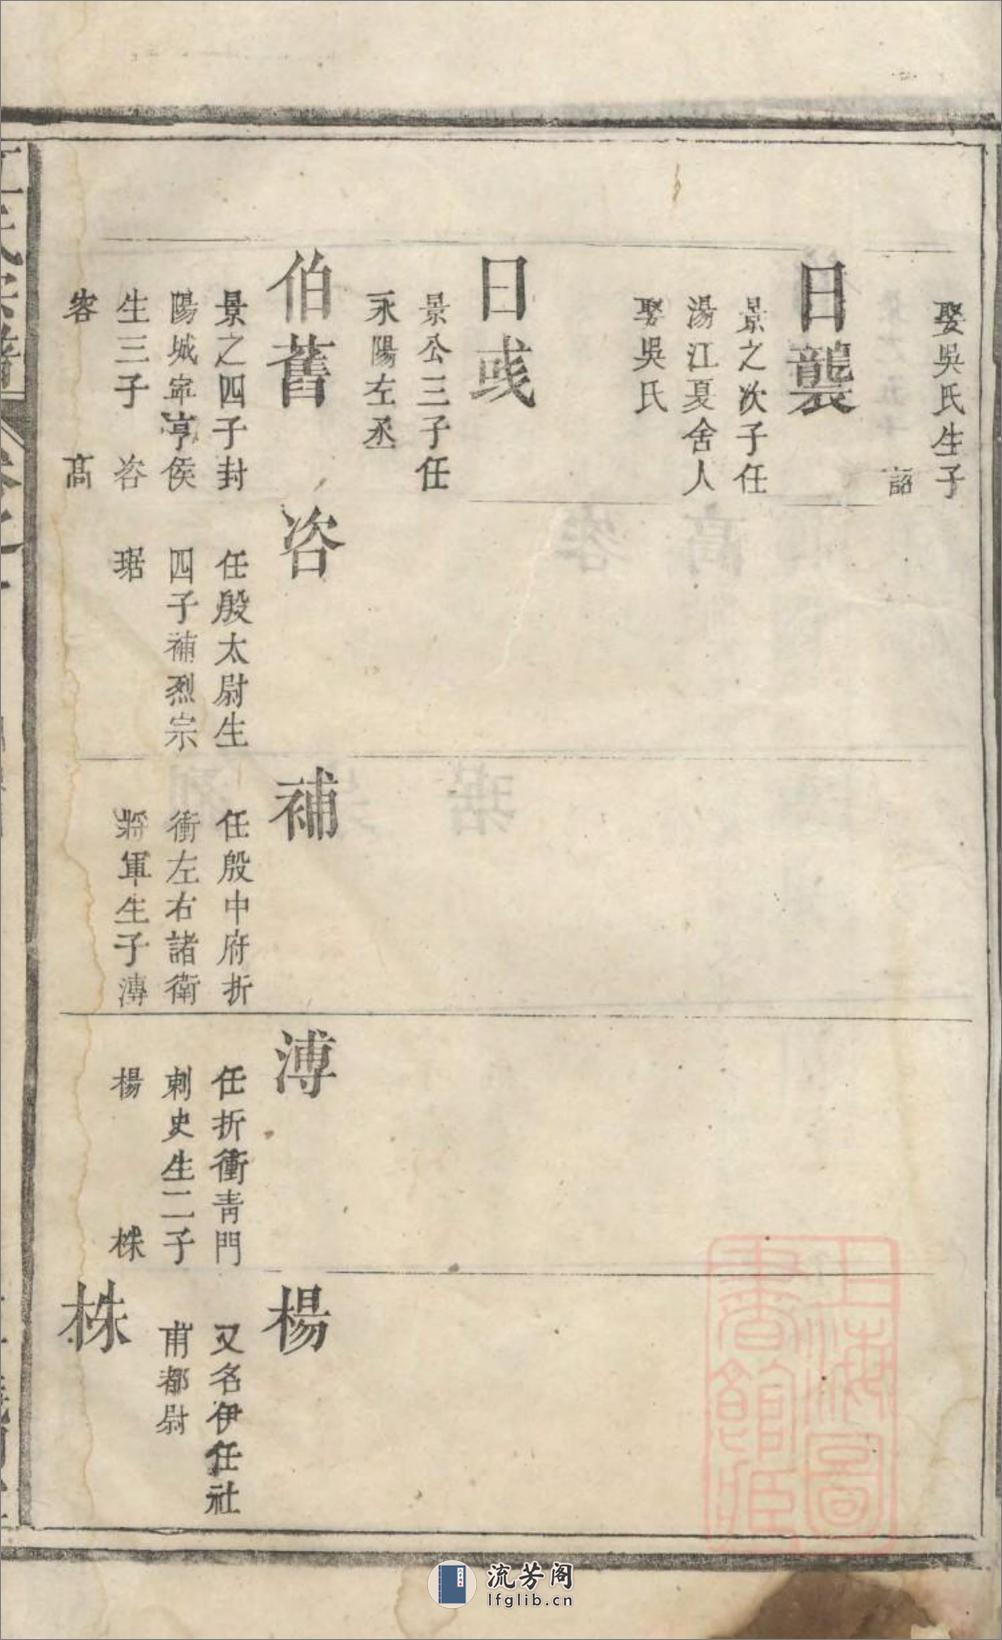 娶吳氏生子
詔
日襲
景之次子任
湯江夏舍人
娶吳氏
日彧
景公三子任
永陽左丞
伯舊
景之四子封
陽城寧亨侯
生三子 咨
容 高
咨
任殷太尉生
四子補烈宗
琚
補
任殷中府折
衝左右諸衛
將軍生子溥
溥
任折衝青門
刺史生二子
楊 株
楊
又名伊任社
甫都尉
株
上海圖
書館
流芳阁
lfglib.cn